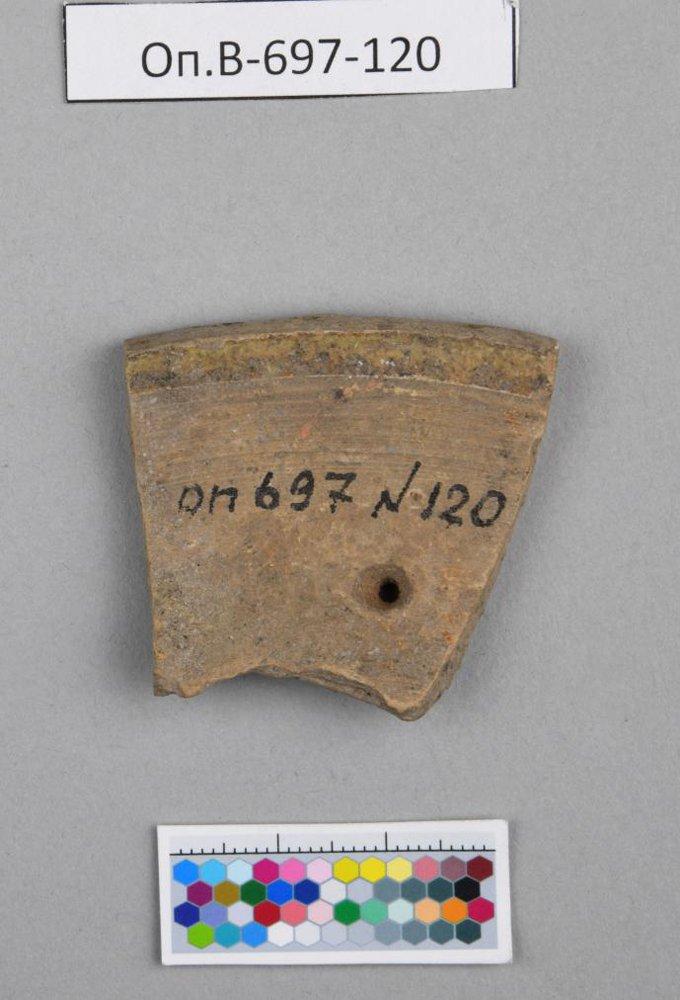 Оп.В-697-120
оп 697 N 120